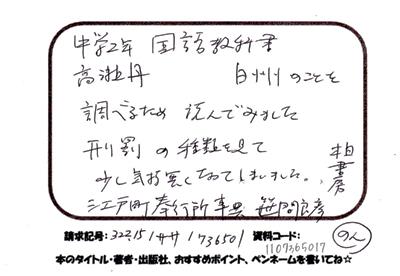 中学2年 国語教科書
高瀬舟 白州のことを
調べるため 読んでみました
刑罰の種類を見て
少し気持悪くなってしまいました。
柏書房
江戸町奉行所事典 笹間良彦
請求記号: 322.15/ササ/736501 資料コード: 1107365017
のん
本のタイトル・著者・出版社、おすすめポイント、ペンネームを書いてね☆